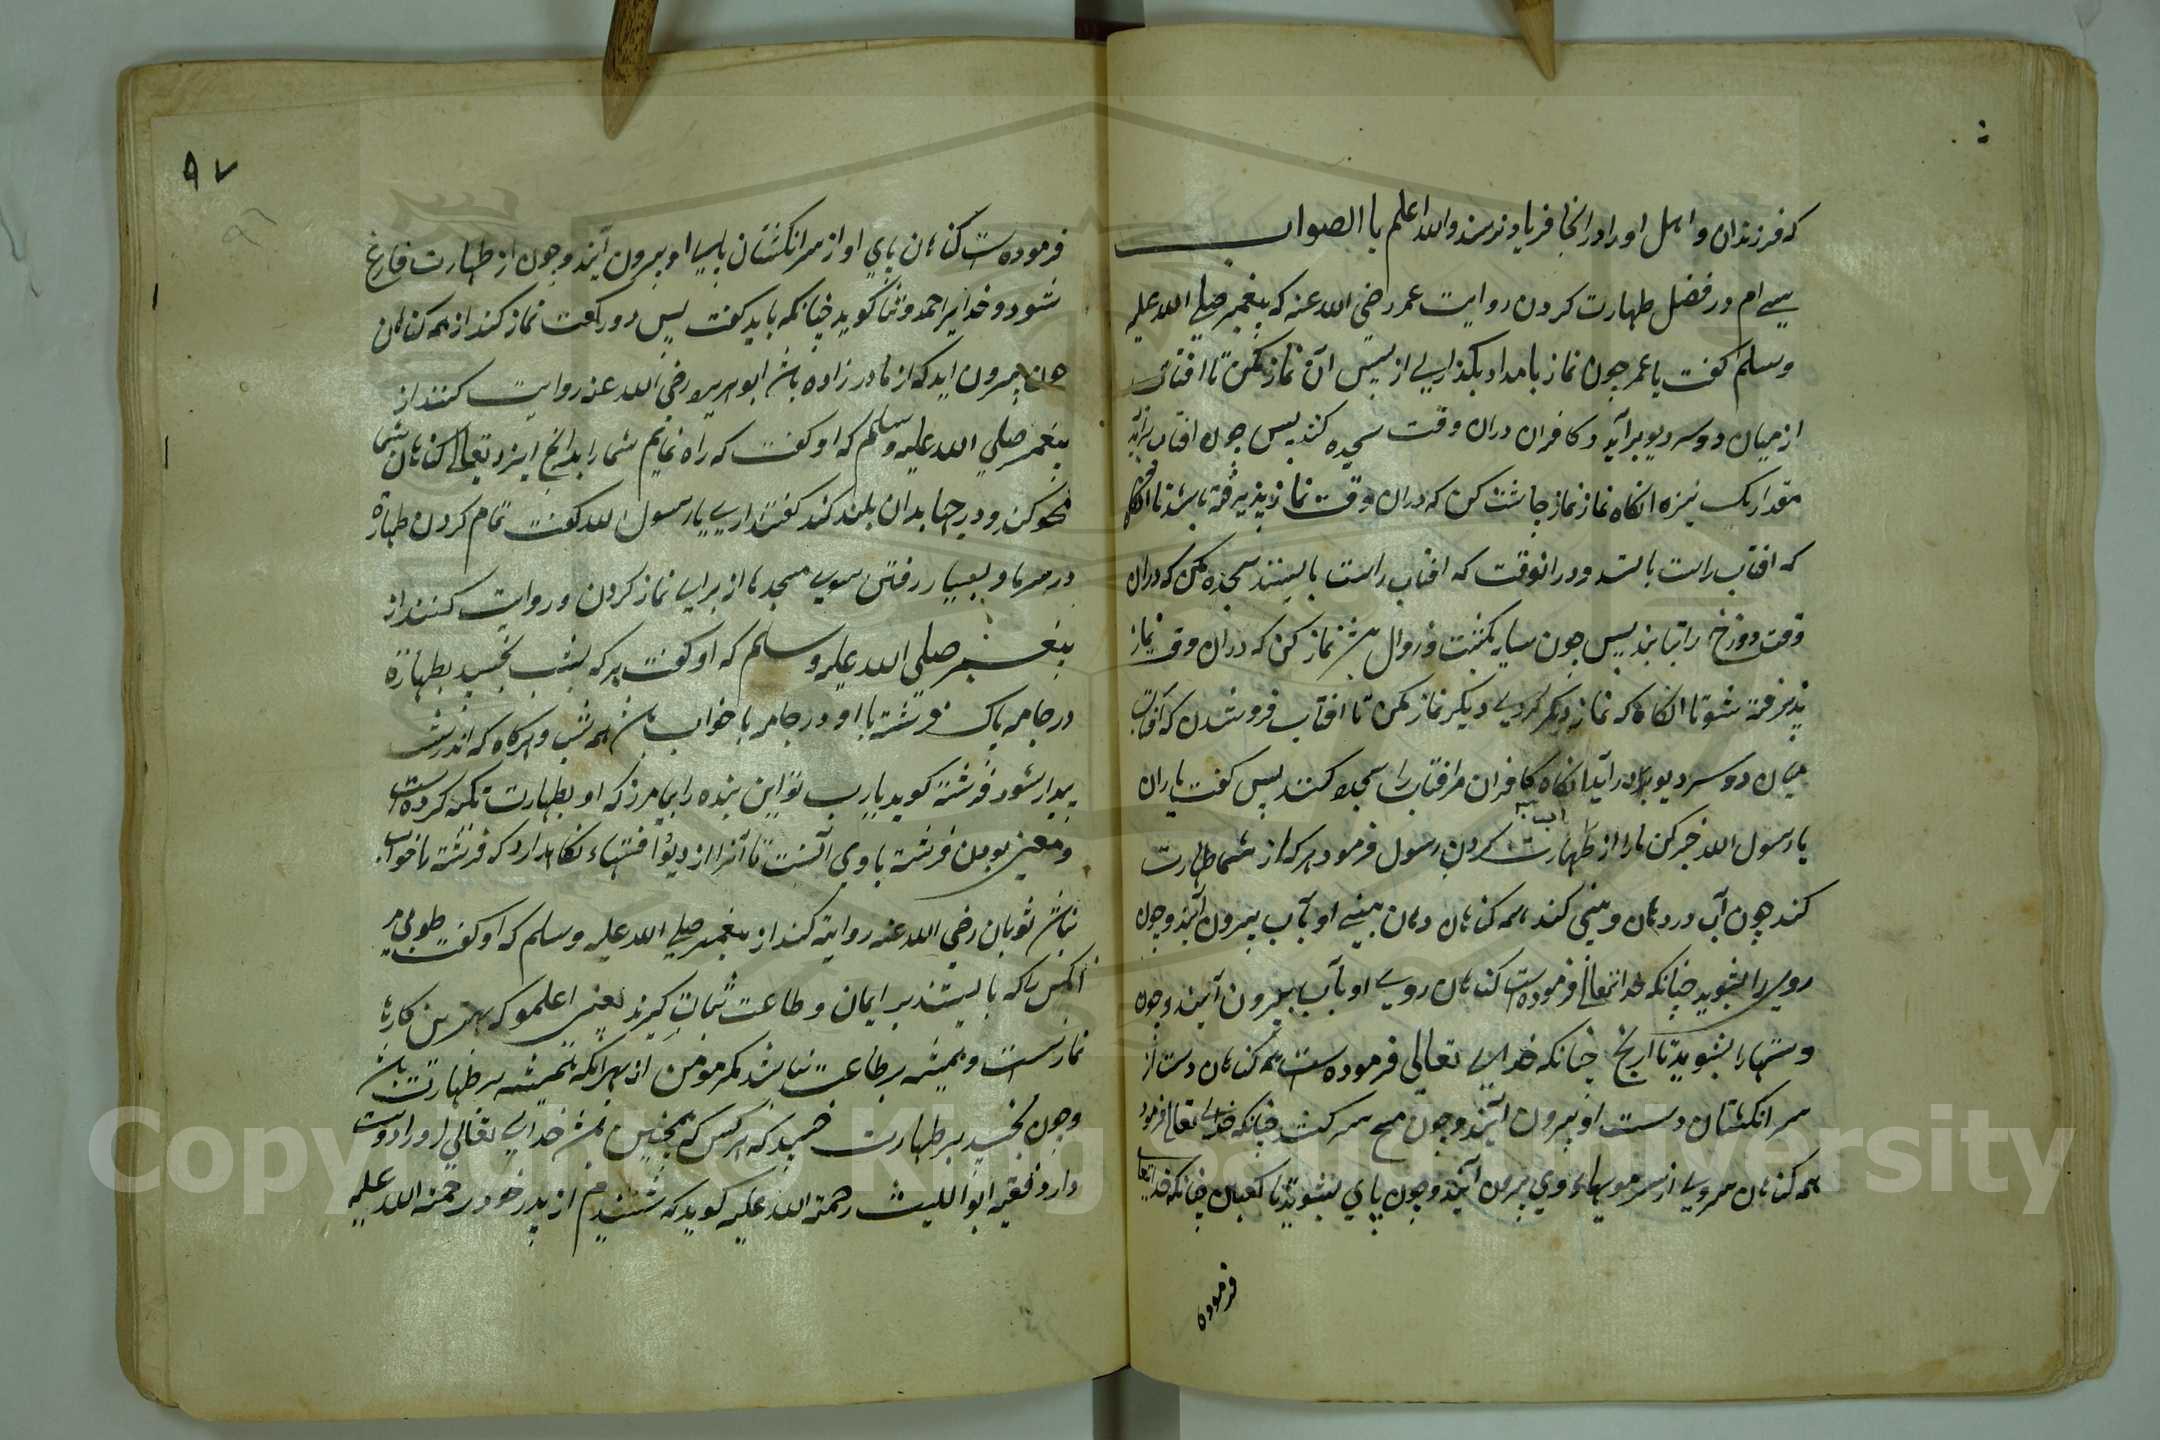 که فرزندان و اهل او را در انجا فریاد نرسند والله اعلم با الصواب
سی ام در فضل طهارت کردن روایت عمر رضی الله عنه که پیغمبر صلی الله علیه
وسلم کفت یا عمر جون نماز بامداد بکذاریی از پس آن نماز مکن تا افتاب
از میان دو سر دیو برآید و کافران دران وقت سجده کنند پس جون افتاب برآید
مقدار یک نیزه انکاه نماز نماز جاشت کن که دران وقت نماز پذیرفته باشد تا انکاه
که افتاب راست بایستد و درانوقت که افتاب راست بایستند سجده مکن که دران
وقت دوزخ را تابند پس جون سایه بکشت و زوال شد نماز کن که دران وقت نماز
پذیرفته شود تا انکاه که نماز دیکر کردیی دیکر نماز مکن تا افتاب فروشدن که افتاب
میان دو سر دیو در آید انکاه کافران مر افتاب را سجده کنند پس کفت یاران
یا رسول الله خبر کن ما را از طهارت کردن رسول فرمود هر که از شما طهارت
کند چون آب در دهان و بینی کند همه کناهان دهان بینی او بآب بیرون آیند و جون
روی را بشوید جنانکه خدایتعالی فرموده است کناهان روی او بآب بیرون آیند و جون
دستها را بشوید تا آرنج جنانکه خدای تعالی فرموده است همه کناهان دست از
سر انکشتان دست او بیرون آیند و جون مسح سر کند جنانکه خدای تعالی فرمود
همه کناهان سر وی از سر مویهاء وی بیرون آیند و جون پای بشوید تا کعبان جنانکه خدایتعالی
فرموده
٩٧
فرموده است کناهان پای او از سر انکشتان پای او بیرون آیند و جون از طهارت فارغ
شود و خدایرا حمد و ثنا کوید جنانکه باید کفت پس دو رکعت نماز کند از همه کناهان
بیرون اید که از مادر زاده باشد ابو هریره رضی الله عنه روایت کنند از
پیغمبر صلی الله علیه وسلم که او کفت که راه نمایم شما را بدانج ایزد تعالی کناهان شما
محو کند و درجها بدان بلند کند کفتند اری یا رسول الله کفت تمام کردن طهارة
در سرما و بسیار رفتن سوی مسجدها از برای نماز کردن و روایت کنند از
پیغمبر صلی الله علیه وسلم که او کفت هر که بشب بخسپد بطهارة
در جامه پاک فرشته با او در جامه با خواب باشد همه شب و هر کاه که اندر شب
بیدار شود فرشته کوید یارب تو این بنده را بیامرز که او بطهارت تکیه کرده است
و معنی بودن فرشته با وی آنست تا آنرا از دیو افتنهاء نکاه دارد که فرشته با خواب
نباشد ثوبان رضی الله عنه روایة کند از پیغمبر صلی الله علیه وسلم که او کفت طوبی مر
انکس را که بایستند بر ایمان و طاعت ثبات کیرند یعنی اعلموا که بهترین کارها
نماز ست و همیشه بر طاعت نباشد مکر مومن از بهر انکه همیشه بر طهارت باشد
و جون بخسپد بر طهارت خسپد که هر کس که همجنین باشد خدای تعالی او را دوست
دارد و فقیه ابو اللیث رحمة الله علیه کوید که شنیدم از پدر خود رحمة الله علیه
Copyright © King Saud University